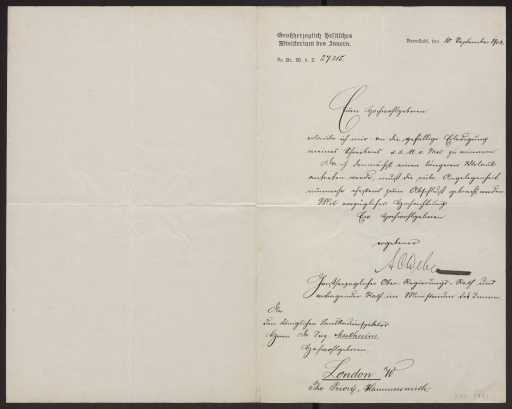 Großherzoglich Hessisches
Ministerium des Innern.
Darmstadt, den 10 September 1903.
Zu Nr. M. d. I. 27215.
Euer Hochwohlgeboren
erlaube ich mir an die gefällige Erledigung
meines Schreibens d. d. M. zu erinnern
Da ich demnächst einen längeren Urlaub
antreten werde, die Angelegenheit
nunmehr zum Abschluß gebracht werden
Mit vorzüglicher Hochachtung
Euer Hochwohlgeboren
ergebener
Großherzoglicher Ober Regierungs-Rath und
vortragender Rath im Ministerium des Innern
An
den Königlichen
Herrn Dr. Ing. Muthesius
Hochwohlgeboren
London W
The Priory, Hammersmith